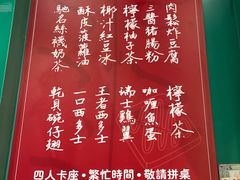 肉鬆炸豆腐
三醬豬腸粉
檸檬柚子茶
椰汁紅豆冰
酥皮菠蘿油
馳名絲襪奶茶
檸檬茶
咖喱魚蛋
瑞士雞翼
王者西多士
一口西多士
乾貝碗仔翅
四人卡座•繁忙時間•敬請拼桌